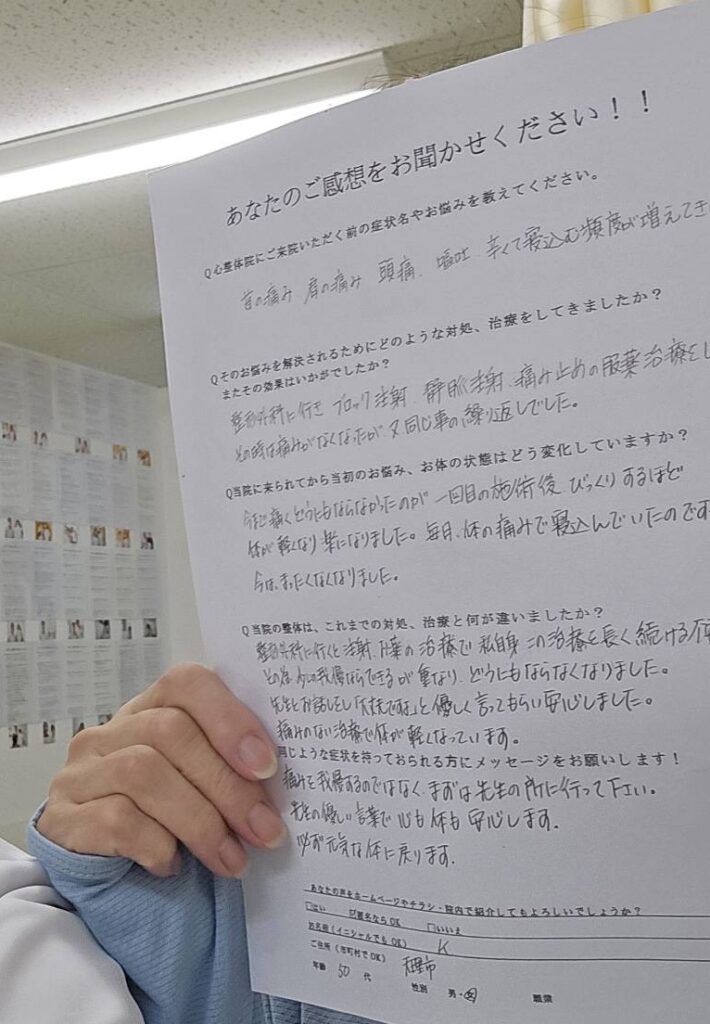 あなたのご感想をお聞かせください！！
Q心整体院にご来院いただく前の症状名やお悩みを教えてください。
首の痛み 肩の痛み 頭痛、嘔吐、辛くて寝込む頻度が増えてき
Qそのお悩みを解決されるためにどのような対処、治療をしてきましたか？
またその効果はいかがでしたか？
整形外科に行き ブロック注射、静脈注射、痛み止めの服薬治療を
その時は痛みがなくなったが、又同じ事の繰り返しでした。
Q当院に来られてから当初のお悩み、お体の状態はどう変化していますか？
今まで痛くどうにもならなかったのが 一回目の施術後 びっくりするほど
体が軽くなり 楽になりました。毎日、体の痛みで寝込んでいたのです
今は、まったくなくなりました。
Q当院の整体は、これまでの対処、治療と何が違いましたか？
整形外科に行くと注射、の治療で 私自身 この治療を長く続ける不
我慢ならできるが重なり、どうにもならなくなりました。
先生とお話をし「大丈夫ですよ」と優しく言ってもらい安心しました。
痛みのない治療で体が軽くなっています。
同じような症状を持っておられる方にメッセージをお願いします！
痛みを我慢するのではなく、まずは先生の所に行って下さい。
先生の優しい言葉で心も体も安心します。
必ず元気な体に戻ります。
あなたの声をホームページやチラシ・院内で紹介してもよろしいでしょうか？
□はい ☑匿名ならOK □いいえ
お名前(イニシャルでも OK) K
ご住所(市町村でOK)
年齢 50 代 性別 男・女 職業